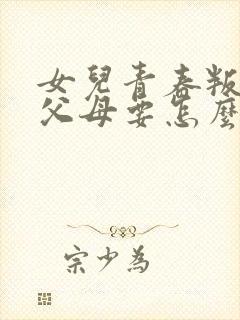 女兒青春叛
父母要怎麼
宗少為